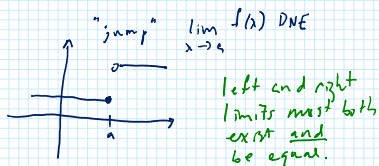 "jump"
lim f(x) DNE
x → a
a
left and right
limits must both
exist and
be equal.